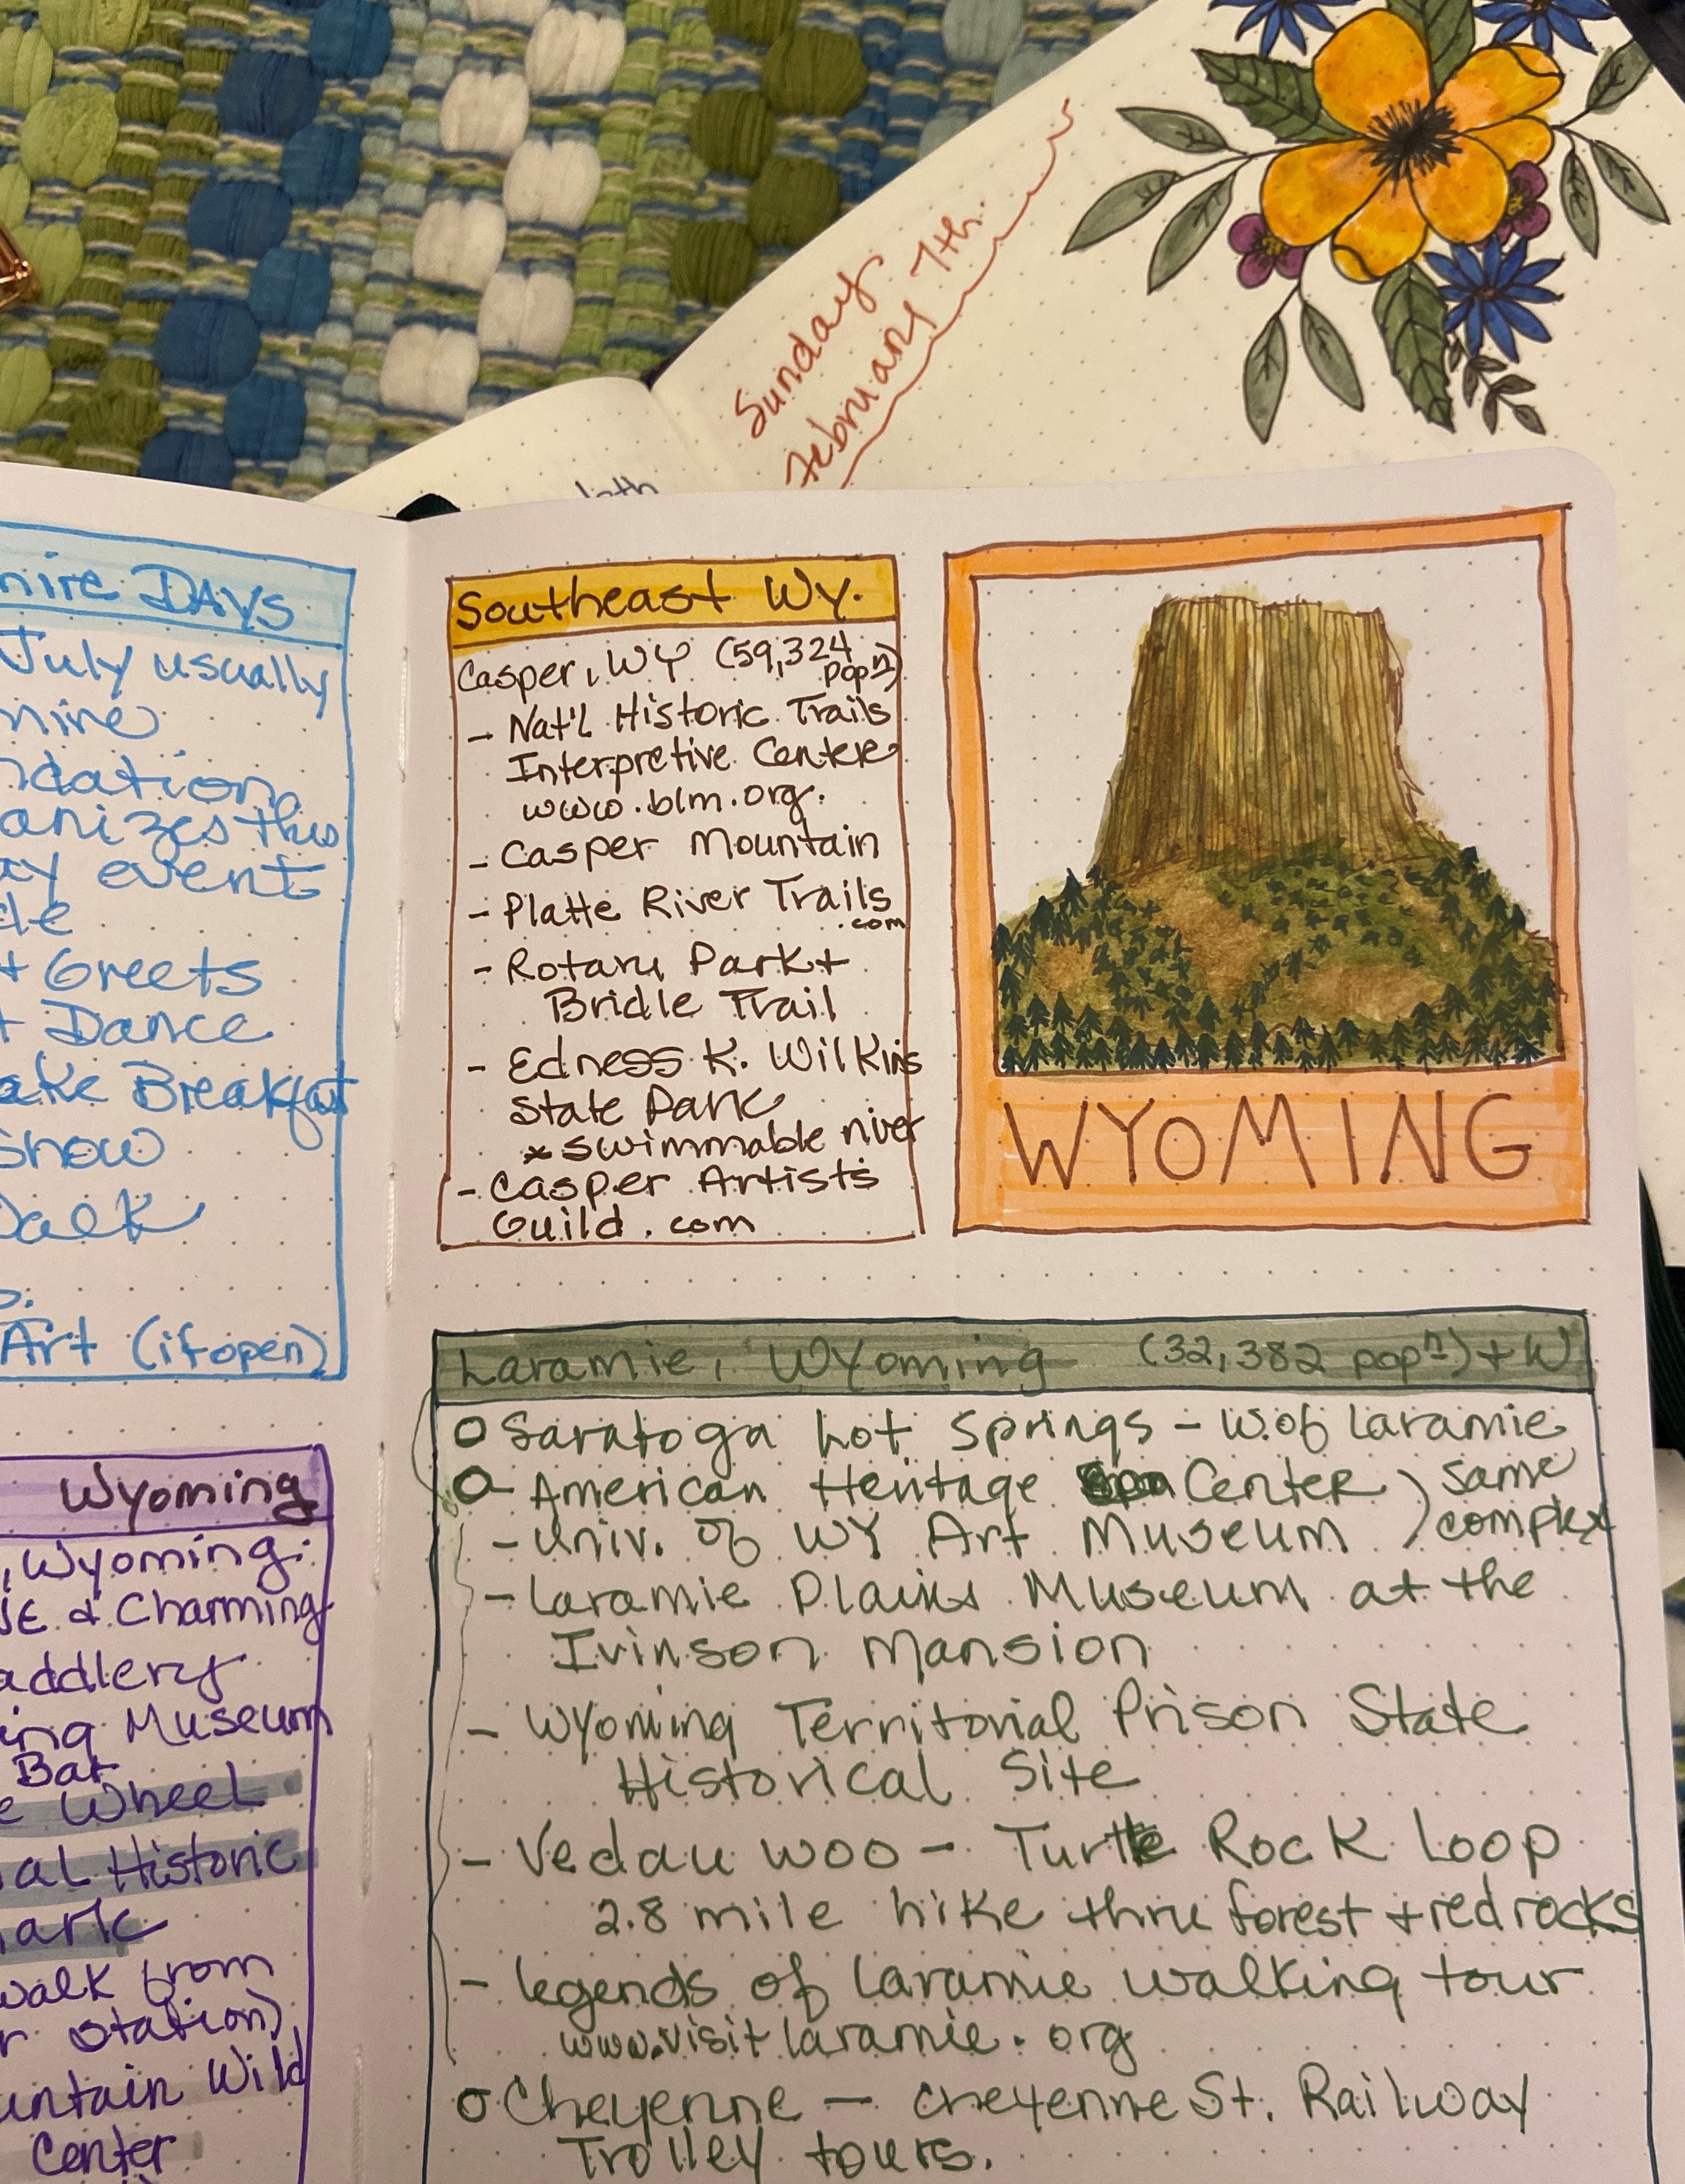 Sunday 7th
February
Days
July usually
anizes this
event
+ Greets
+ Dance
Breakfast
Show
Art (if open)
Wyoming
, Wyoming:
& Charming
Museum
Bar
Wheel
Historic
walk from
station)
Wild
Center
Southeast Wy.
Casper, WY (59,324
popn)
- Nat'l Historic Trails
Interpretive Center
www.blm.org.
- Casper Mountain
- Platte River Trails
.com
- Rotary Park +
Bridle Trail
- Edness K. Wilkins
State Park
* swimmable river
- Casper Artists
Guild.com
WYOMING
Laramie, Wyoming (32,382 popn) + W
O Saratoga hot springs - W. of Laramie
O - American Heritage Center ) same
- Univ. of WY Art Museum ) complex
- Laramie Plains Museum at the
Ivinson Mansion
- Wyoming Territorial Prison State
Historical Site
- Vedauwoo - Turtle Rock Loop
2.8 mile hike thru forest + red rocks
- legends of Laramie walking tour
www.visitlaramie.org
O Cheyenne - Cheyenne St. Railway
Trolley tours.